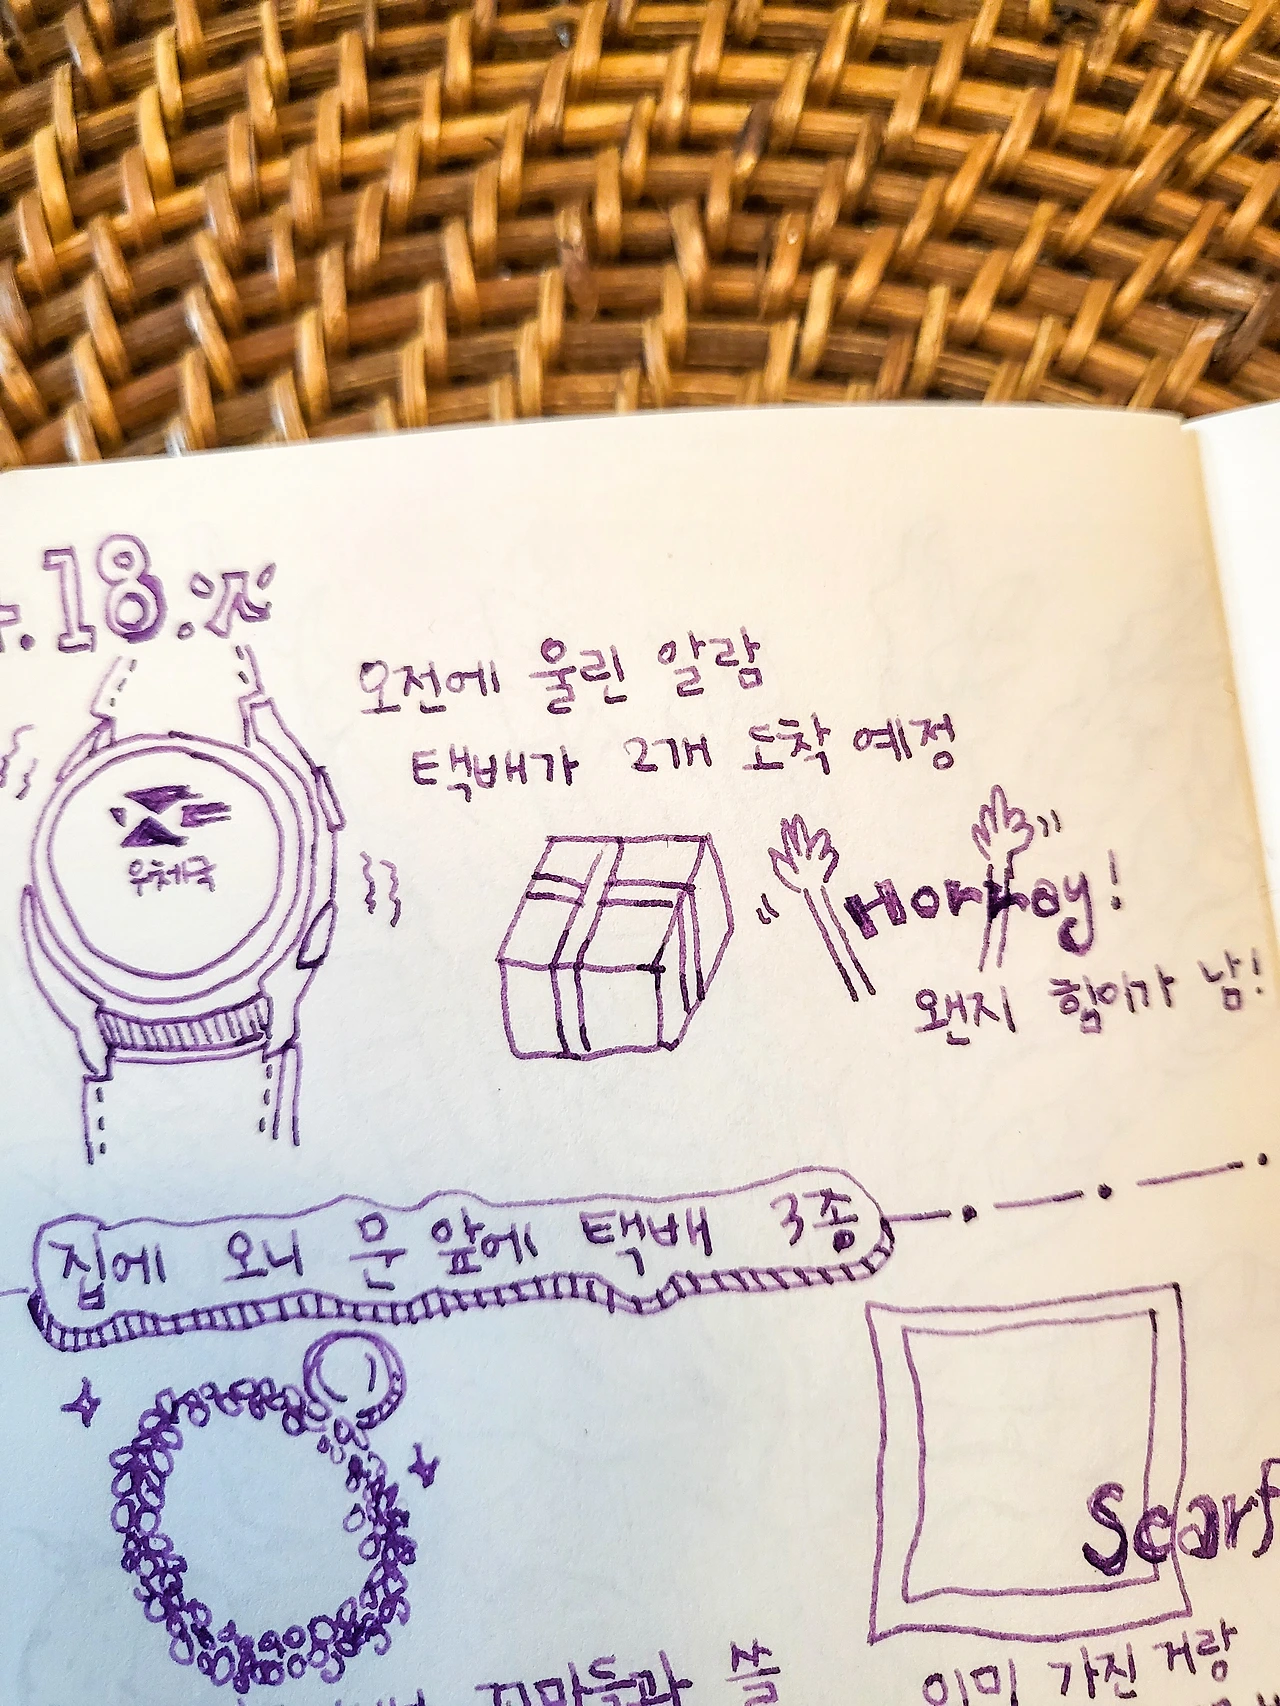 .18.火
오전에 울린 알람
택배가 2개 도착 예정
우체국
Horray!
왠지 힘이가 남!
집에 오니 문 앞에 택배 3종
Scarf
이미 가진 거랑